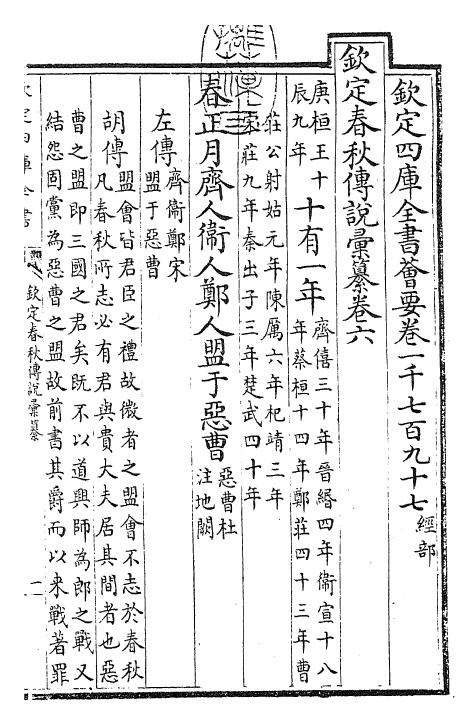 欽定四庫全書薈要卷一千七百九十七 經部
欽定春秋傳說彙纂卷六
庚桓王十
辰九年
十有一年
齊僖三十年晉緡四年衛宣十八
年蔡桓十四年鄭莊四十三年曹
莊公射姑元年陳厲六年杞靖三年
宋莊九年秦出子三年楚武四十年
春正月齊人衛人鄭人盟于惡曹
惡曹杜
注地闕
左傳
齊衛鄭宋
盟于惡曹
胡傳
盟會皆君臣之禮故微者之盟會不志於春秋
凡春秋所志必有君與貴大夫居其間者也惡
曹之盟即三國之君矣既不以道興師為郎之戰又
結怨固黨為惡曹之盟故前書其爵而以來戰著罪
欽定四庫全書
欽定春秋傳說彙纂
一